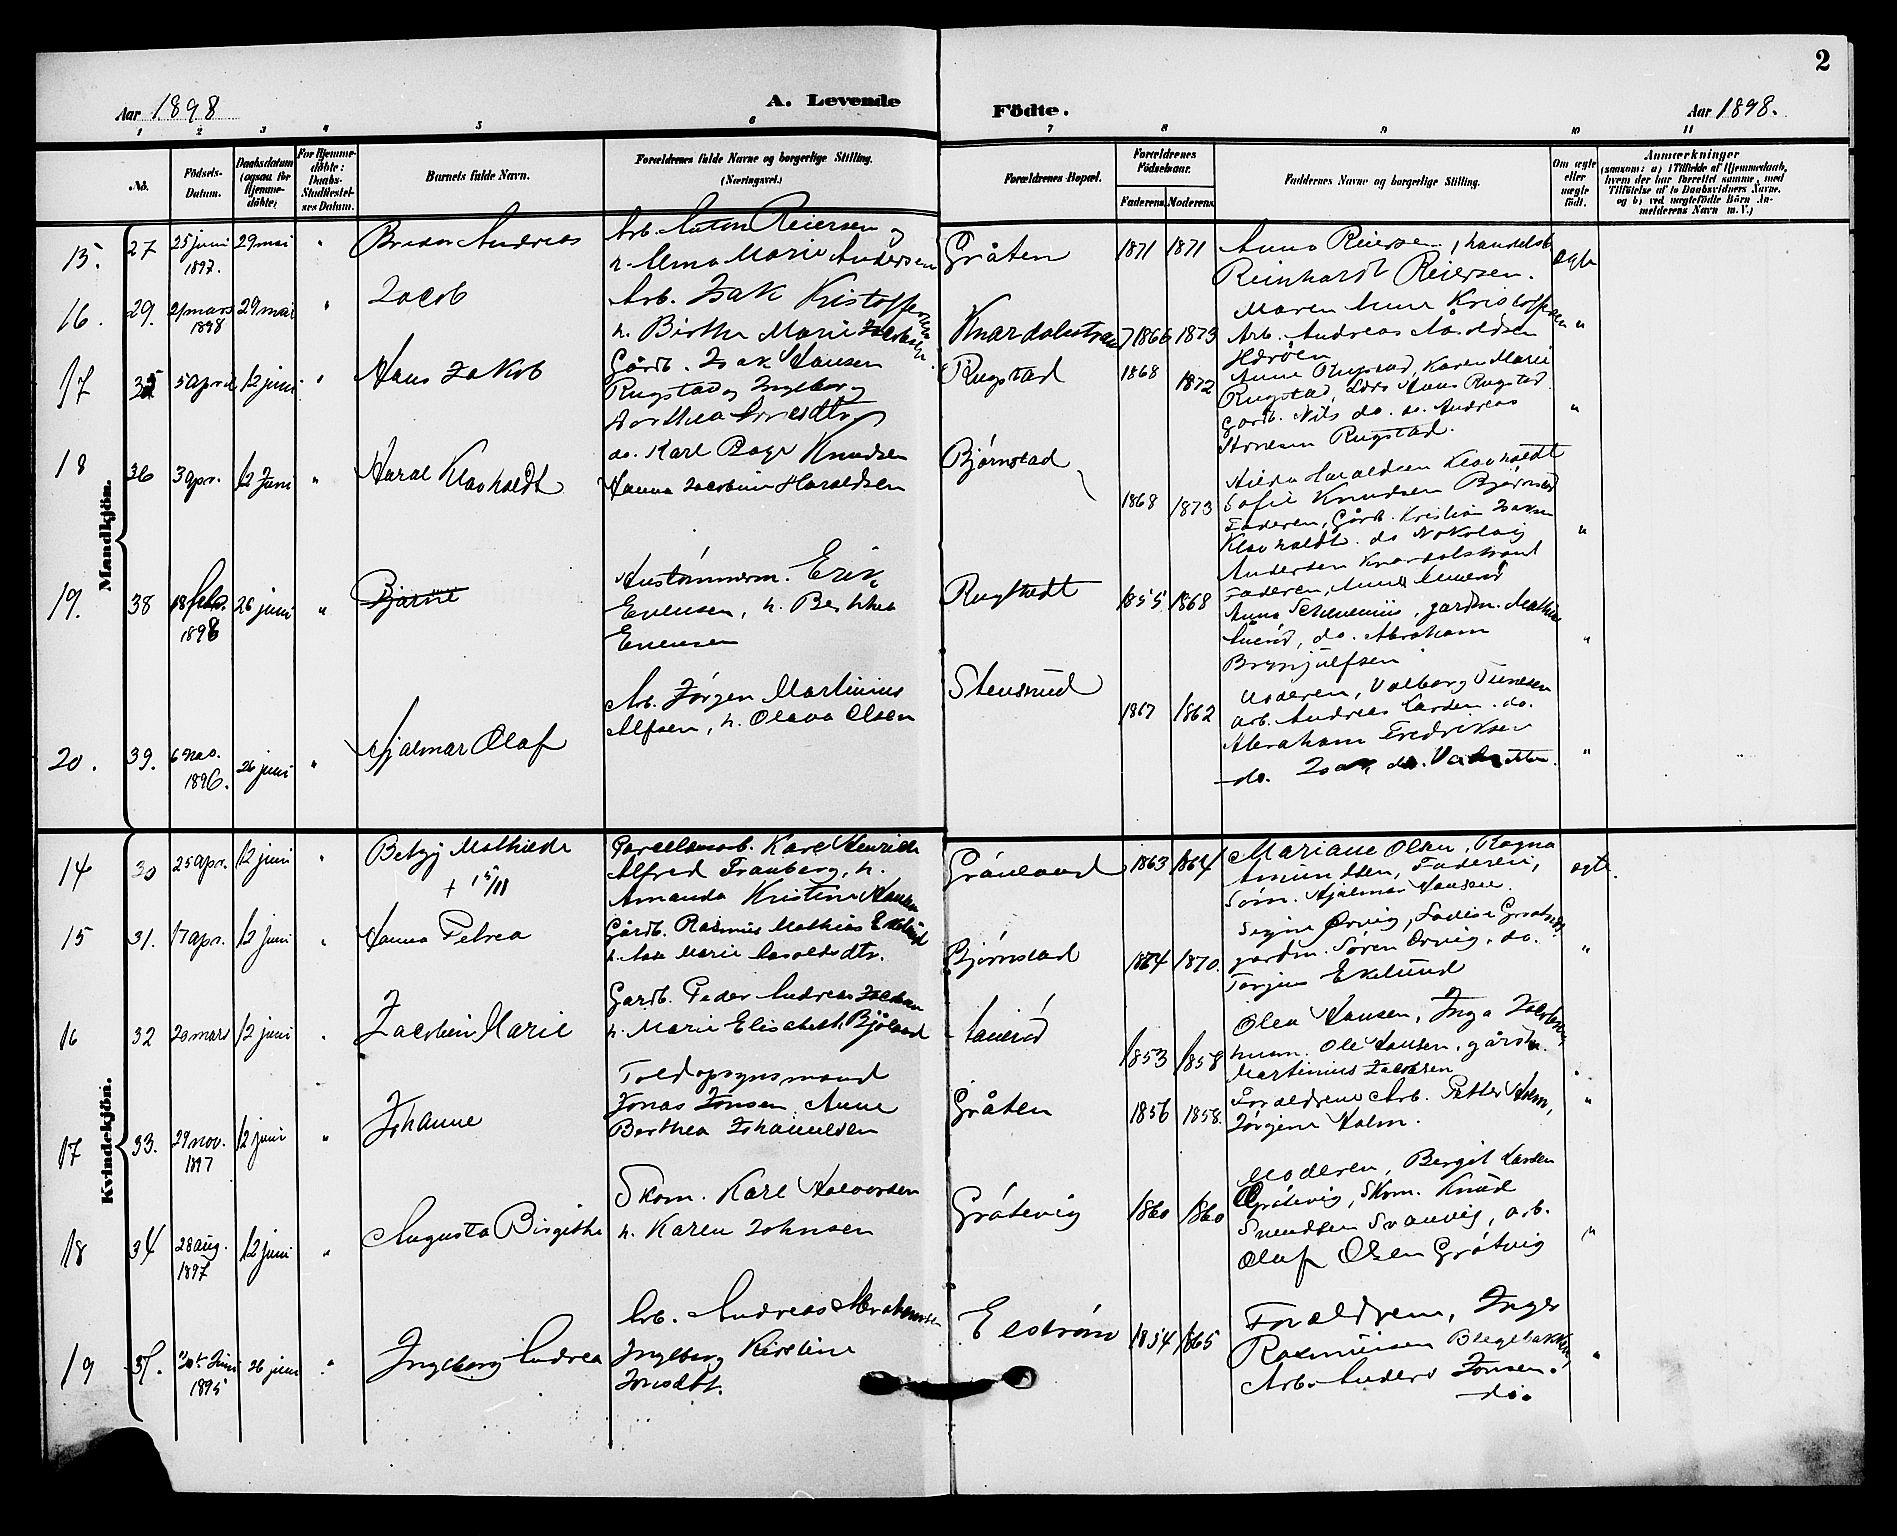 2
Aar 1898
A. Levende
Födte.
Aar 1898.
1 2 3 4 5 6 7 8 9 10 11
No.
Födsels-Datum.
Daabsdatum (ogsaa for Hjemme-döbte)
For Hjemme-döbte: Daabs-Stadfæstel-ses Datum.
Barnets fulde Navn.
Forældrenes fulde Navne og borgerlige Stilling. (Næringsvei.)
Forældrenes Bopæl.
Forældrenes Födselsaar.
Faderens Moderens
Faddernes Navne og borgerlige Stilling.
Om ægte eller uægte födt.
Anmærkninger
(saasom: a) i Tilfælde af Hjemmedaab, hvem der har forrettet samme, med Tilföielse af to Daabsvidners Navne. og b) ved uægtefödte Börn Anmelderens Navn m. V.)
Mandkjön.
15. 27 25 juni 1897. 29 mai " Andreas
Arb. Anton Reiersen og
h. Anna Marie Andersen
Gråten 1871 1871
Anna Reiersen, handelsb.
Reinhardt Reiersen.
ægte
16. 29. 21 mars 1898 29 mai " Jacob
Arb. Isak Kristoffersen
h. Birthe Marie
Knardalstrand 1866 1873
Maren Anne Kristoffersen
Arb. Andreas
Herøen
"
17 35 5 april 12 juni " Hans Jakob
Gårdb. Isak Hansen
Rugstad og Ingeborg
Dorthea
Rugstad 1868 1872
Anne Rugstad, Karen Marie
Rugstad, Lars Hans Rugstad
Gårdb. Nils do. do. Andreas
Rugstad.
"
18 36 3 apr. 12 Juni " Haral Klavholdt
do. Karl Knudsen
Hanna Jacobine Haraldsen
Bjørnstad 1868 1873
Hilda Haraldsen Klovholdt
Sofie Knudsen Bjørnstad
Faderen, Gårb. Kristian
Klovholdt do Nikolaij
Andersen Knardalstrand
"
19. 38 18 febr. 1898 26 juni " Bjarne
Hustømmerm. Erik
Evensen, h. Berthea
Evensen
Rugtvedt 1855 1868
Faderen,
Anna, gårdm. Mathias
do. Abraham
Brynjulfsen
"
20. 39. 6 nov. 1896. 26 juni " Hjalmar Olaf
Arb. Jørgen Martinius
Alfsen, h. Olava Olsen
Stensrud 1867 1862
Moderen, Valborg Tunesen
arb. Andreas Larsen. do.
Abraham Fredriksen
do. do.
"
Kvindekjön.
14 30 25 apr. 12 juni " Betzy Mathilde
+ 15/11
Parcellsarb. Karl Henrik
Alfred Franberg, h.
Amanda Kristine Hansen
Grønland 1863 1864
Mariane Olsen, Ragna
Amundsen, Faderen,
Søm. Hjalmar Hansen
ægte.
15 31. 17 apr. 12 juni " Hanna Petrea
Gårdb. Rasmus Mathias Eklund
h. Marie
Bjørnstad 1864 1870.
Signe Ørvig, Lovise
gårdm. Søren Ørvig, do.
Torjus Eklund
"
16 32 20 mars 12 juni " Jacobine Marie
Gardb. Peder Andreas
h. Marie Elisabeth
1853 1858
Olea Hansen, Inga Jacobsen,
husm. Ole Hansen, gårdm.
Martinius Jacobsen
"
17 33. 29 nov. 1897 12 juni " Johanne
Toldopsynsmand
Jonas Jonsen, Anne
Berthea Johannesen
Gråten 1856 1858.
Forældrene Arb. Petter Holm,
Jørgine Holm.
"
18 34 28 aug. 1897 12 juni " Augusta Birgitha
Skom. Karl Halvorsen
h. Karen Johnsen
Gråtevig 1860 1860
Moderen, Bergit Larsen
Gråtevig, Skom. Knud
Svendsen Svanvig, arb.
Olaf Olsen Gråtvig
"
19 37. Juni 1895 26 juni " Ingeborg Andrea
Arb. Andreas Abrahamsen
Ingeborg Kirstine
Jonsdtr.
Elstrøm 1854 1865
Forældrene, Inger
Rasmussen Blegebakken,
Arb. Anders Jonsen.
do.
"